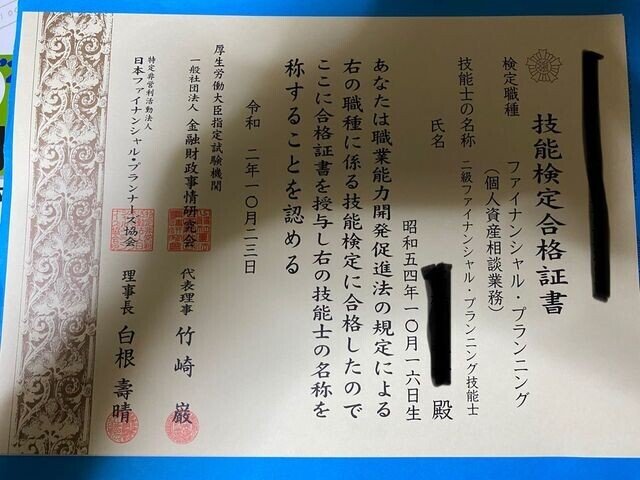 技能検定合格証書
検定職種　ファイナンシャル・プランニング
（個人資産相談業務）
技能士の名称　二級ファイナンシャル・プランニング技能士
氏名
殿
昭和五四年一〇月一六日生
あなたは職業能力開発促進法の規定による
右の職種に係る技能検定に合格したので
ここに合格証書を授与し右の技能士の名称を
称することを認める
令和　二年一〇月二三日
厚生労働大臣指定試験機関
一般社団法人　金融財政事情研究会　代表理事　竹崎　巌
特定非営利活動法人
日本ファイナンシャル・プランナーズ協会　理事長　白根　壽晴